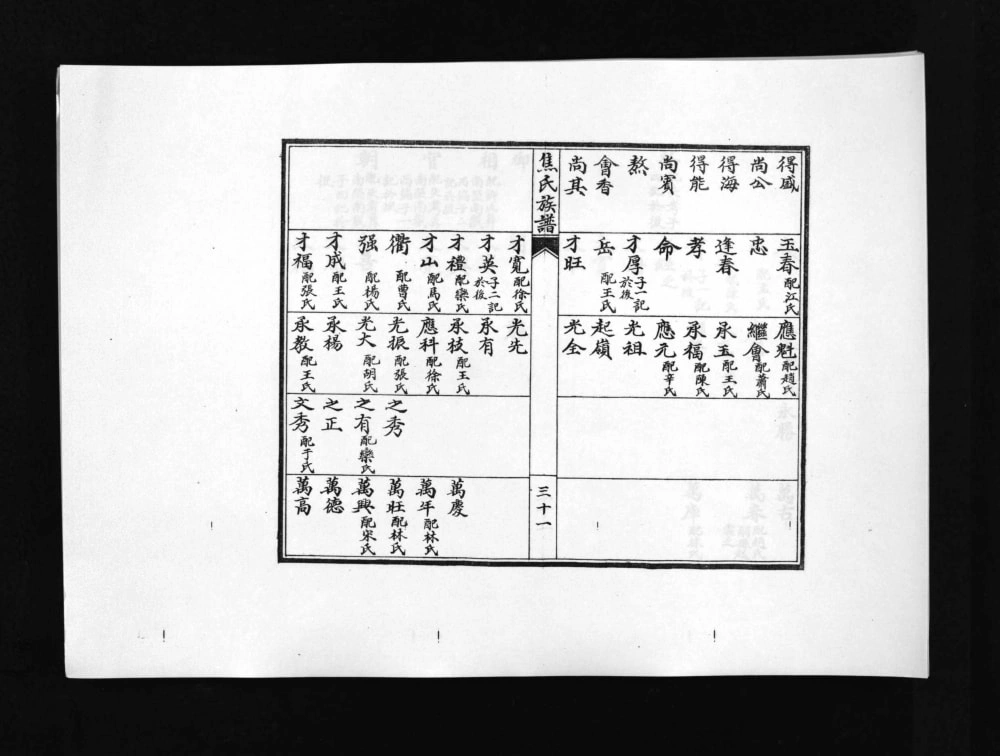 得盛
尚公
得海
得能
尚賓
熬
會香
尚其
玉春 配江氏
忠
逢春
孝
命
才厚 子一記於後
岳 配王氏
才旺
應魁 配趙氏
繼會 配蕭氏
承玉 配王氏
承福 配陳氏
應元 配辛氏
光祖
起嶺
光全
焦氏族譜
三十一
才寬 配徐氏
才英 子二記於後
才禮 配欒氏
才山 配馬氏
衢 配曹氏
强 配楊氏
才成 配王氏
才福 配張氏
光先
承有
承枝 配王氏
應科 配徐氏
光振 配張氏
光大 配胡氏
承楊
承教 配王氏
之秀
之有 配欒氏
之正
文秀 配于氏
萬慶
萬年 配林氏
萬旺 配林氏
萬興 配宋氏
萬德
萬高